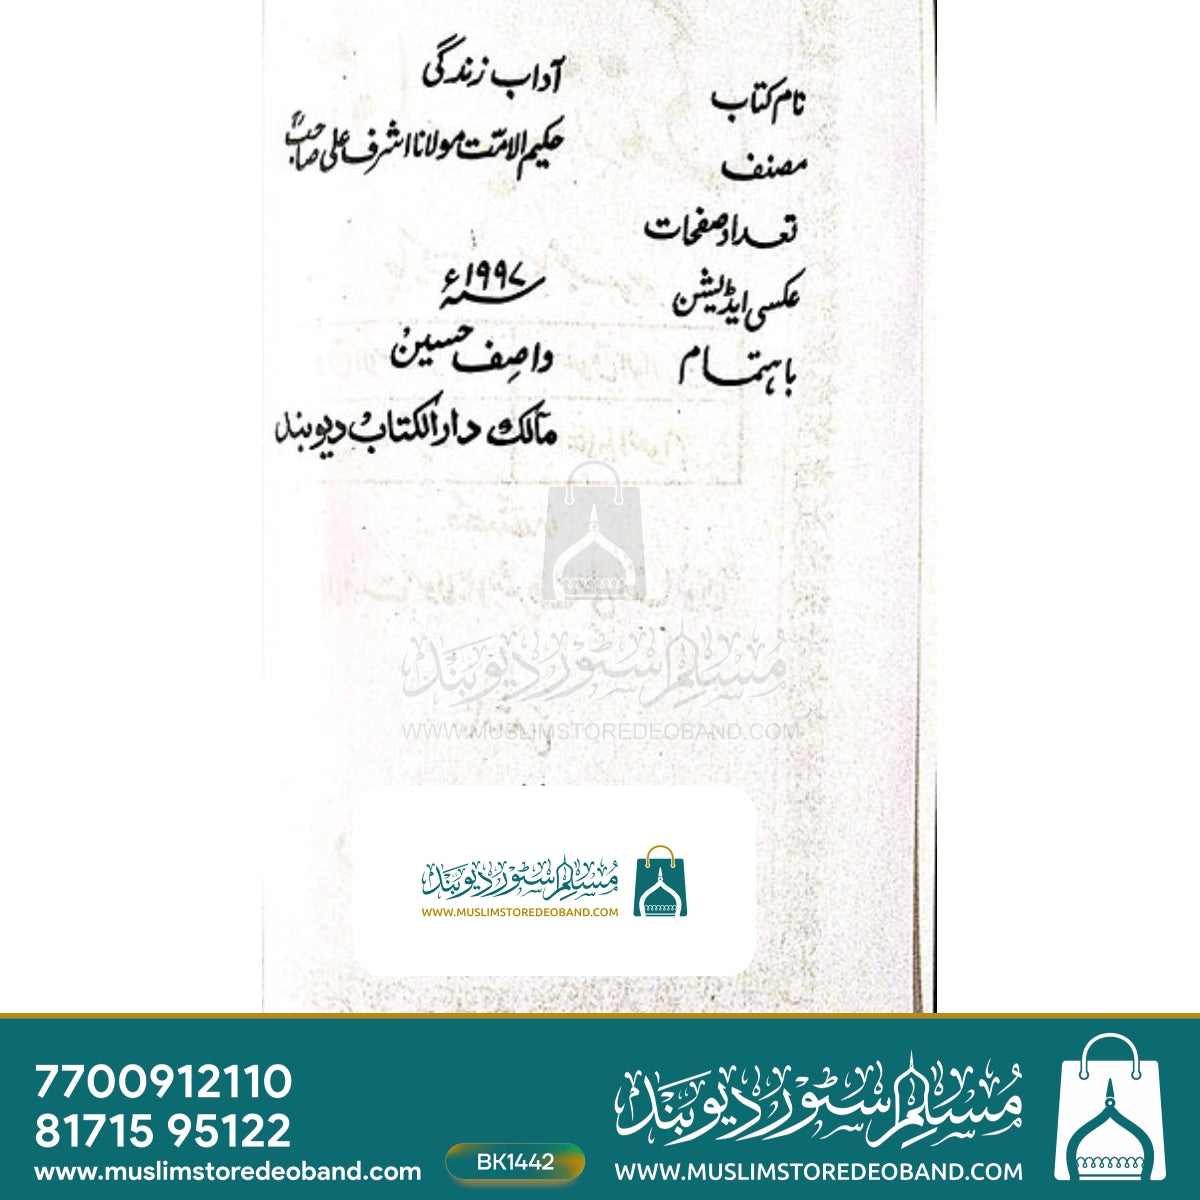 نام کتاب آداب زندگی
مصنف حکیم الامت مولانا اشرف علی صاحبؒ
تعداد صفحات
عکسی ایڈیشن سنہ ۱۹۹۷ء
باہتمام واصف حسین
مالک دارالکتاب دیوبند
مسلم سٹور دیوبند
WWW.MUSLIMSTOREDEOBAND.COM
مسلم سٹور دیوبند
WWW.MUSLIMSTOREDEOBAND.COM
7700912110
81715 95122
www.muslimstoredeoband.com
BK1442
مسلم سٹور دیوبند
WWW.MUSLIMSTOREDEOBAND.COM